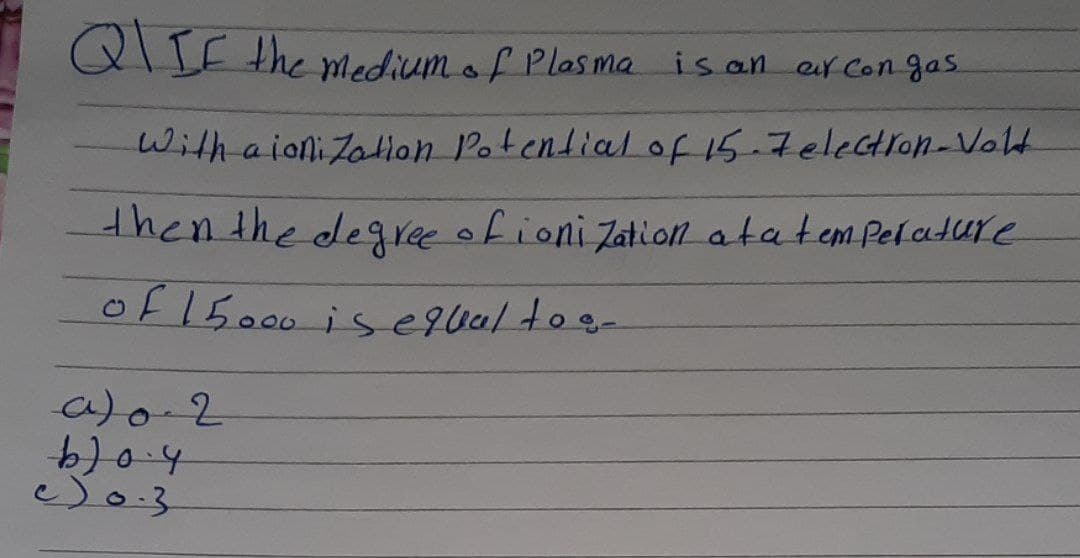 Q\ IF the medium of Plasma is an arcon gas
with a ionization Potential of 15.7 electron-Volt
then the degree of ionization at a temperature
of 15000 is equal to:-
a) 0.2
b) 0.4
c) 0.3